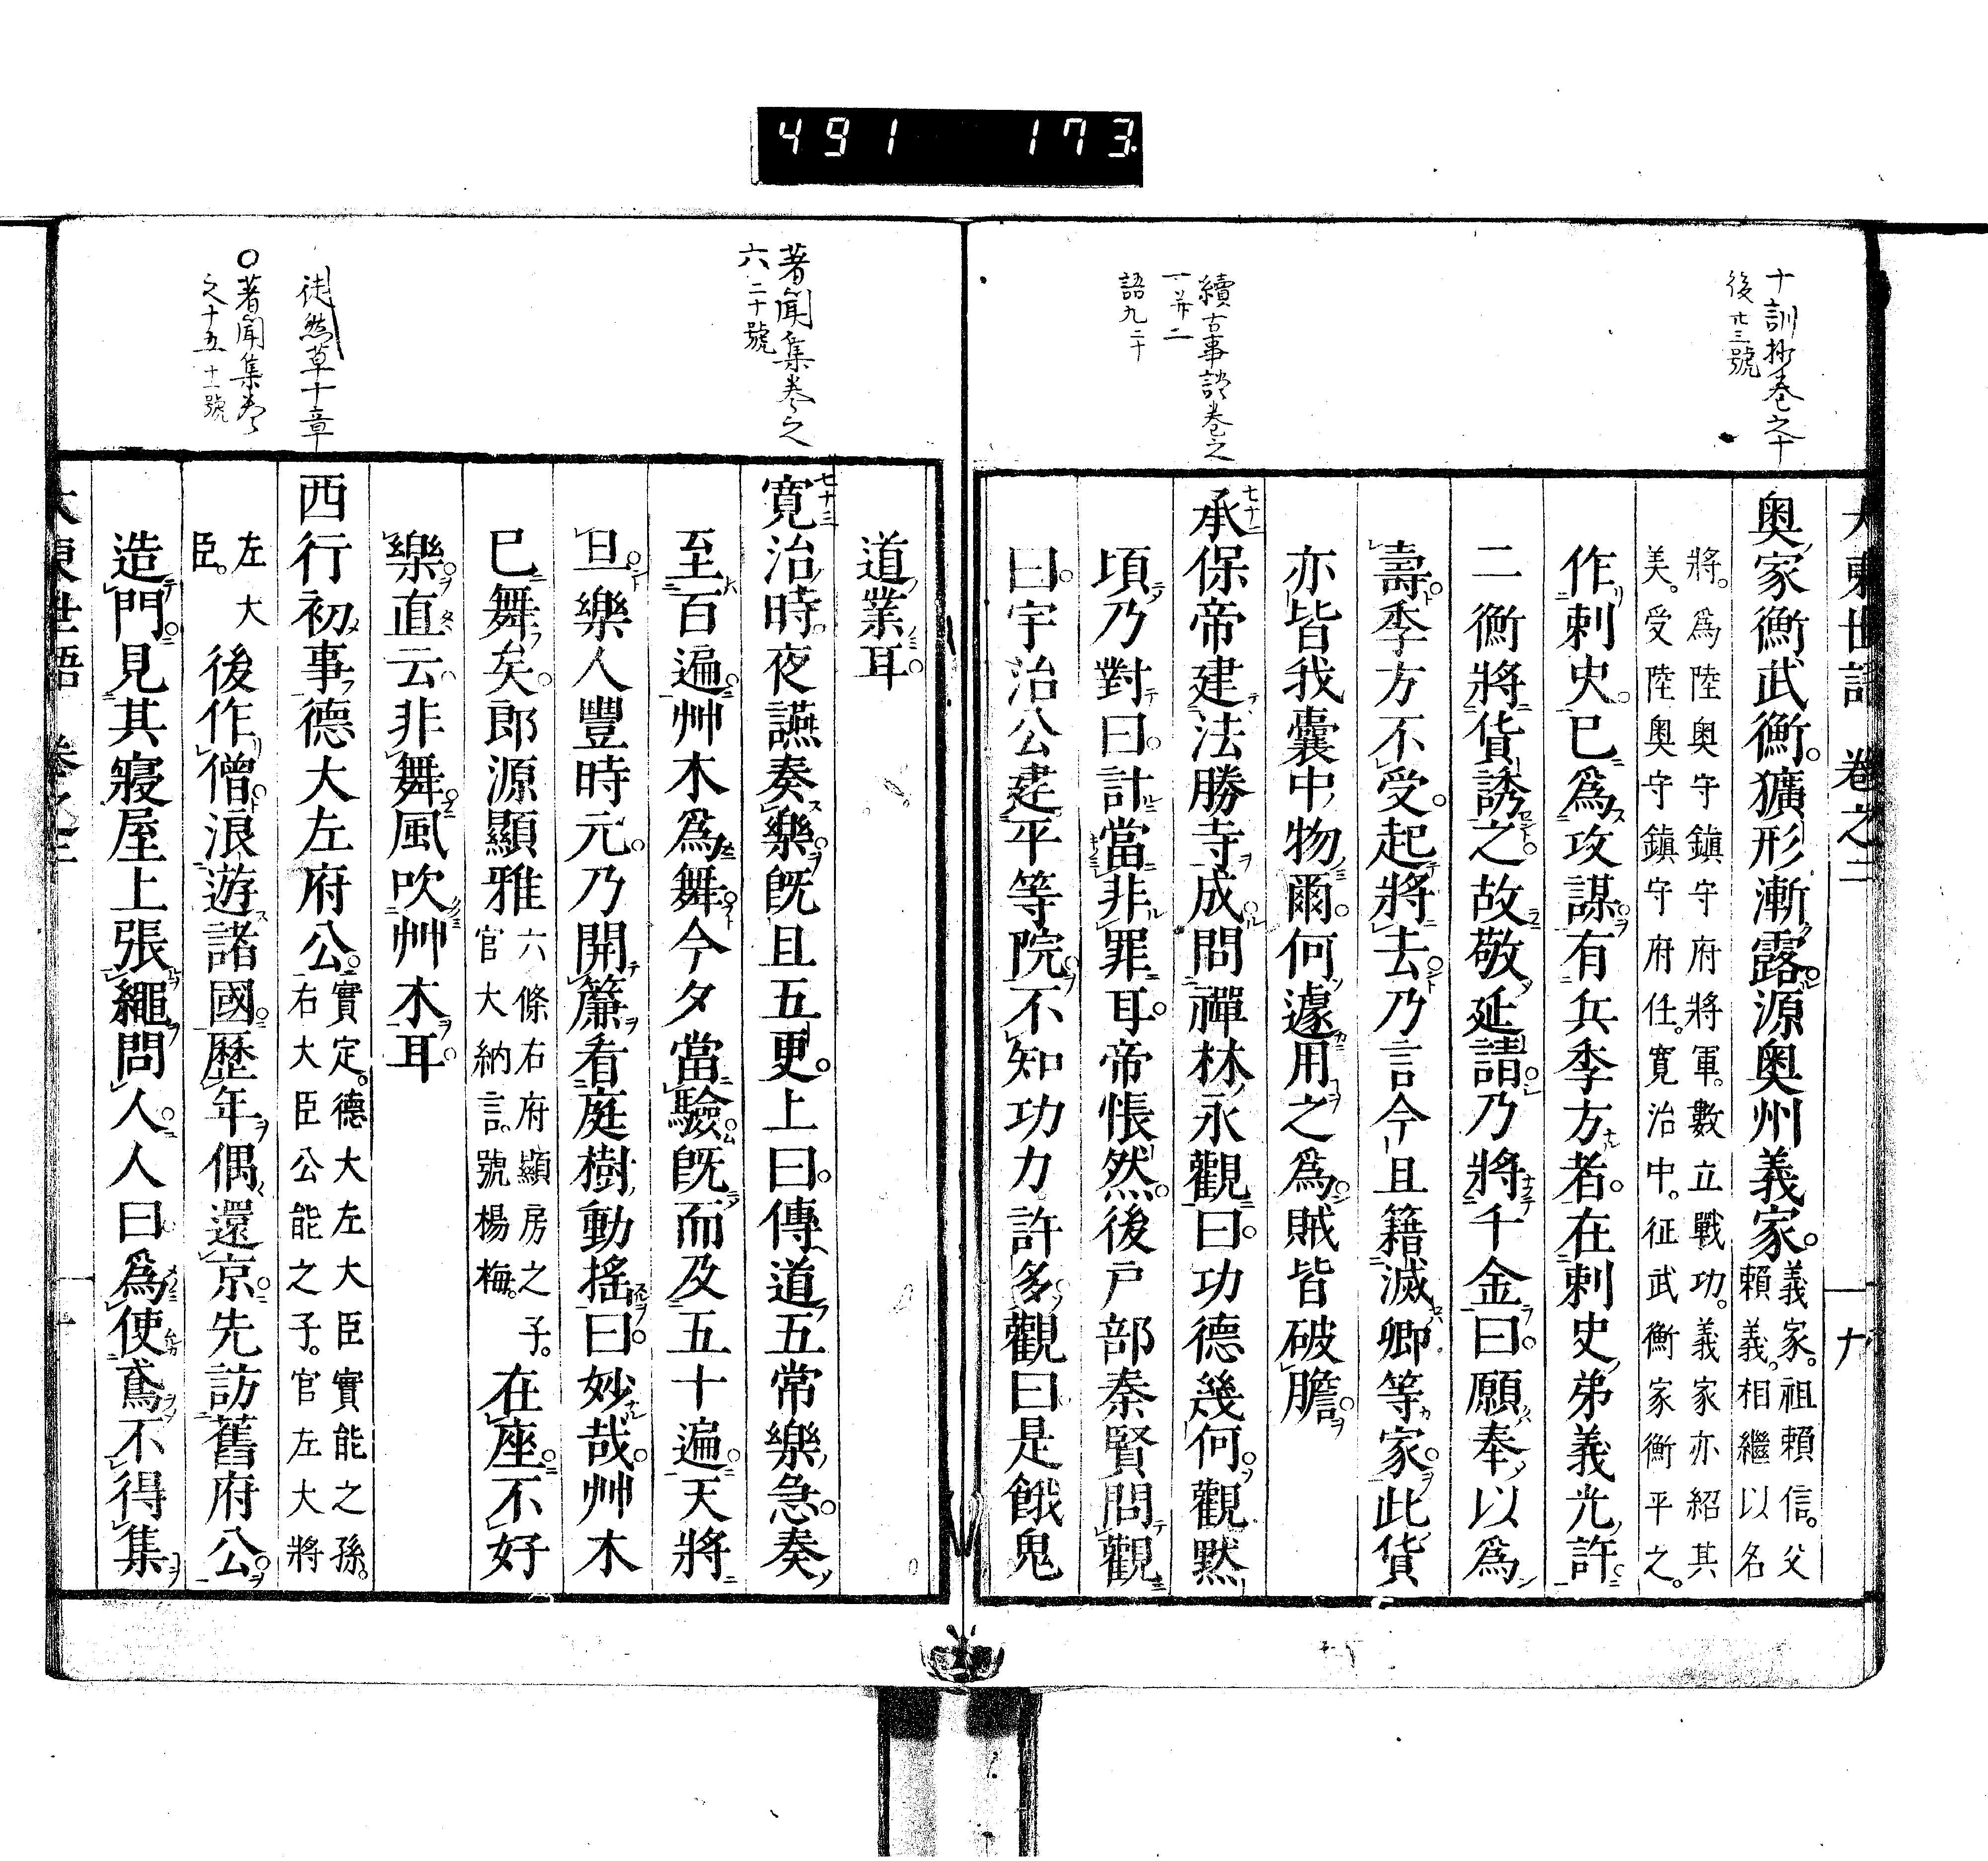 491 173.
十訓抄卷之十
後廿三號
續古事談卷之
一并二
語九二十
大東世語 卷之二 十
奥家衡武衡獷形漸露源奥州義家義家祖賴信父
賴義相繼以名
將爲陸奥守鎮守府將軍數立戰功義家亦紹其
美受陸奥守鎮守府任寛治中征武衡家衡平之
作刺史已爲攻謀有兵季方者在刺史弟義光許
二衡將貨誘之故敬延請乃將千金曰願奉以爲
壽季方不受起將去乃言今且籍滅卿等家此貨
亦皆我囊中物爾何遽用之爲賊皆破膽
七十二
承保帝建法勝寺成問禪林永觀曰功德幾何觀黙
頃乃對曰計當非罪耳帝悵然後戸部秦賢問觀
曰宇治公建平等院不知功力許多觀曰是餓鬼
著聞集卷之
六二十號
徒然草十章
○著聞集卷
之十五十一號
道業耳
七十三
寛治時夜讌奏樂既且五更上曰傳道五常樂急奏
至百遍艸木爲舞今夕當驗既而及五十遍天將
旦樂人豐時元乃開簾看庭樹動搖曰妙哉艸木
已舞矣郎源顯雅六條右府顯房之子
官大納言號楊梅在座不好
樂直云非舞風吹艸木耳
西行初事德大左府公實定德大左大臣實能之孫
右大臣公能之子官左大將
左大
臣後作僧浪遊諸國歴年偶還京先訪舊府公
造門見其寢屋上張繩問人人曰爲使鳶不得集
大東世語 卷之二